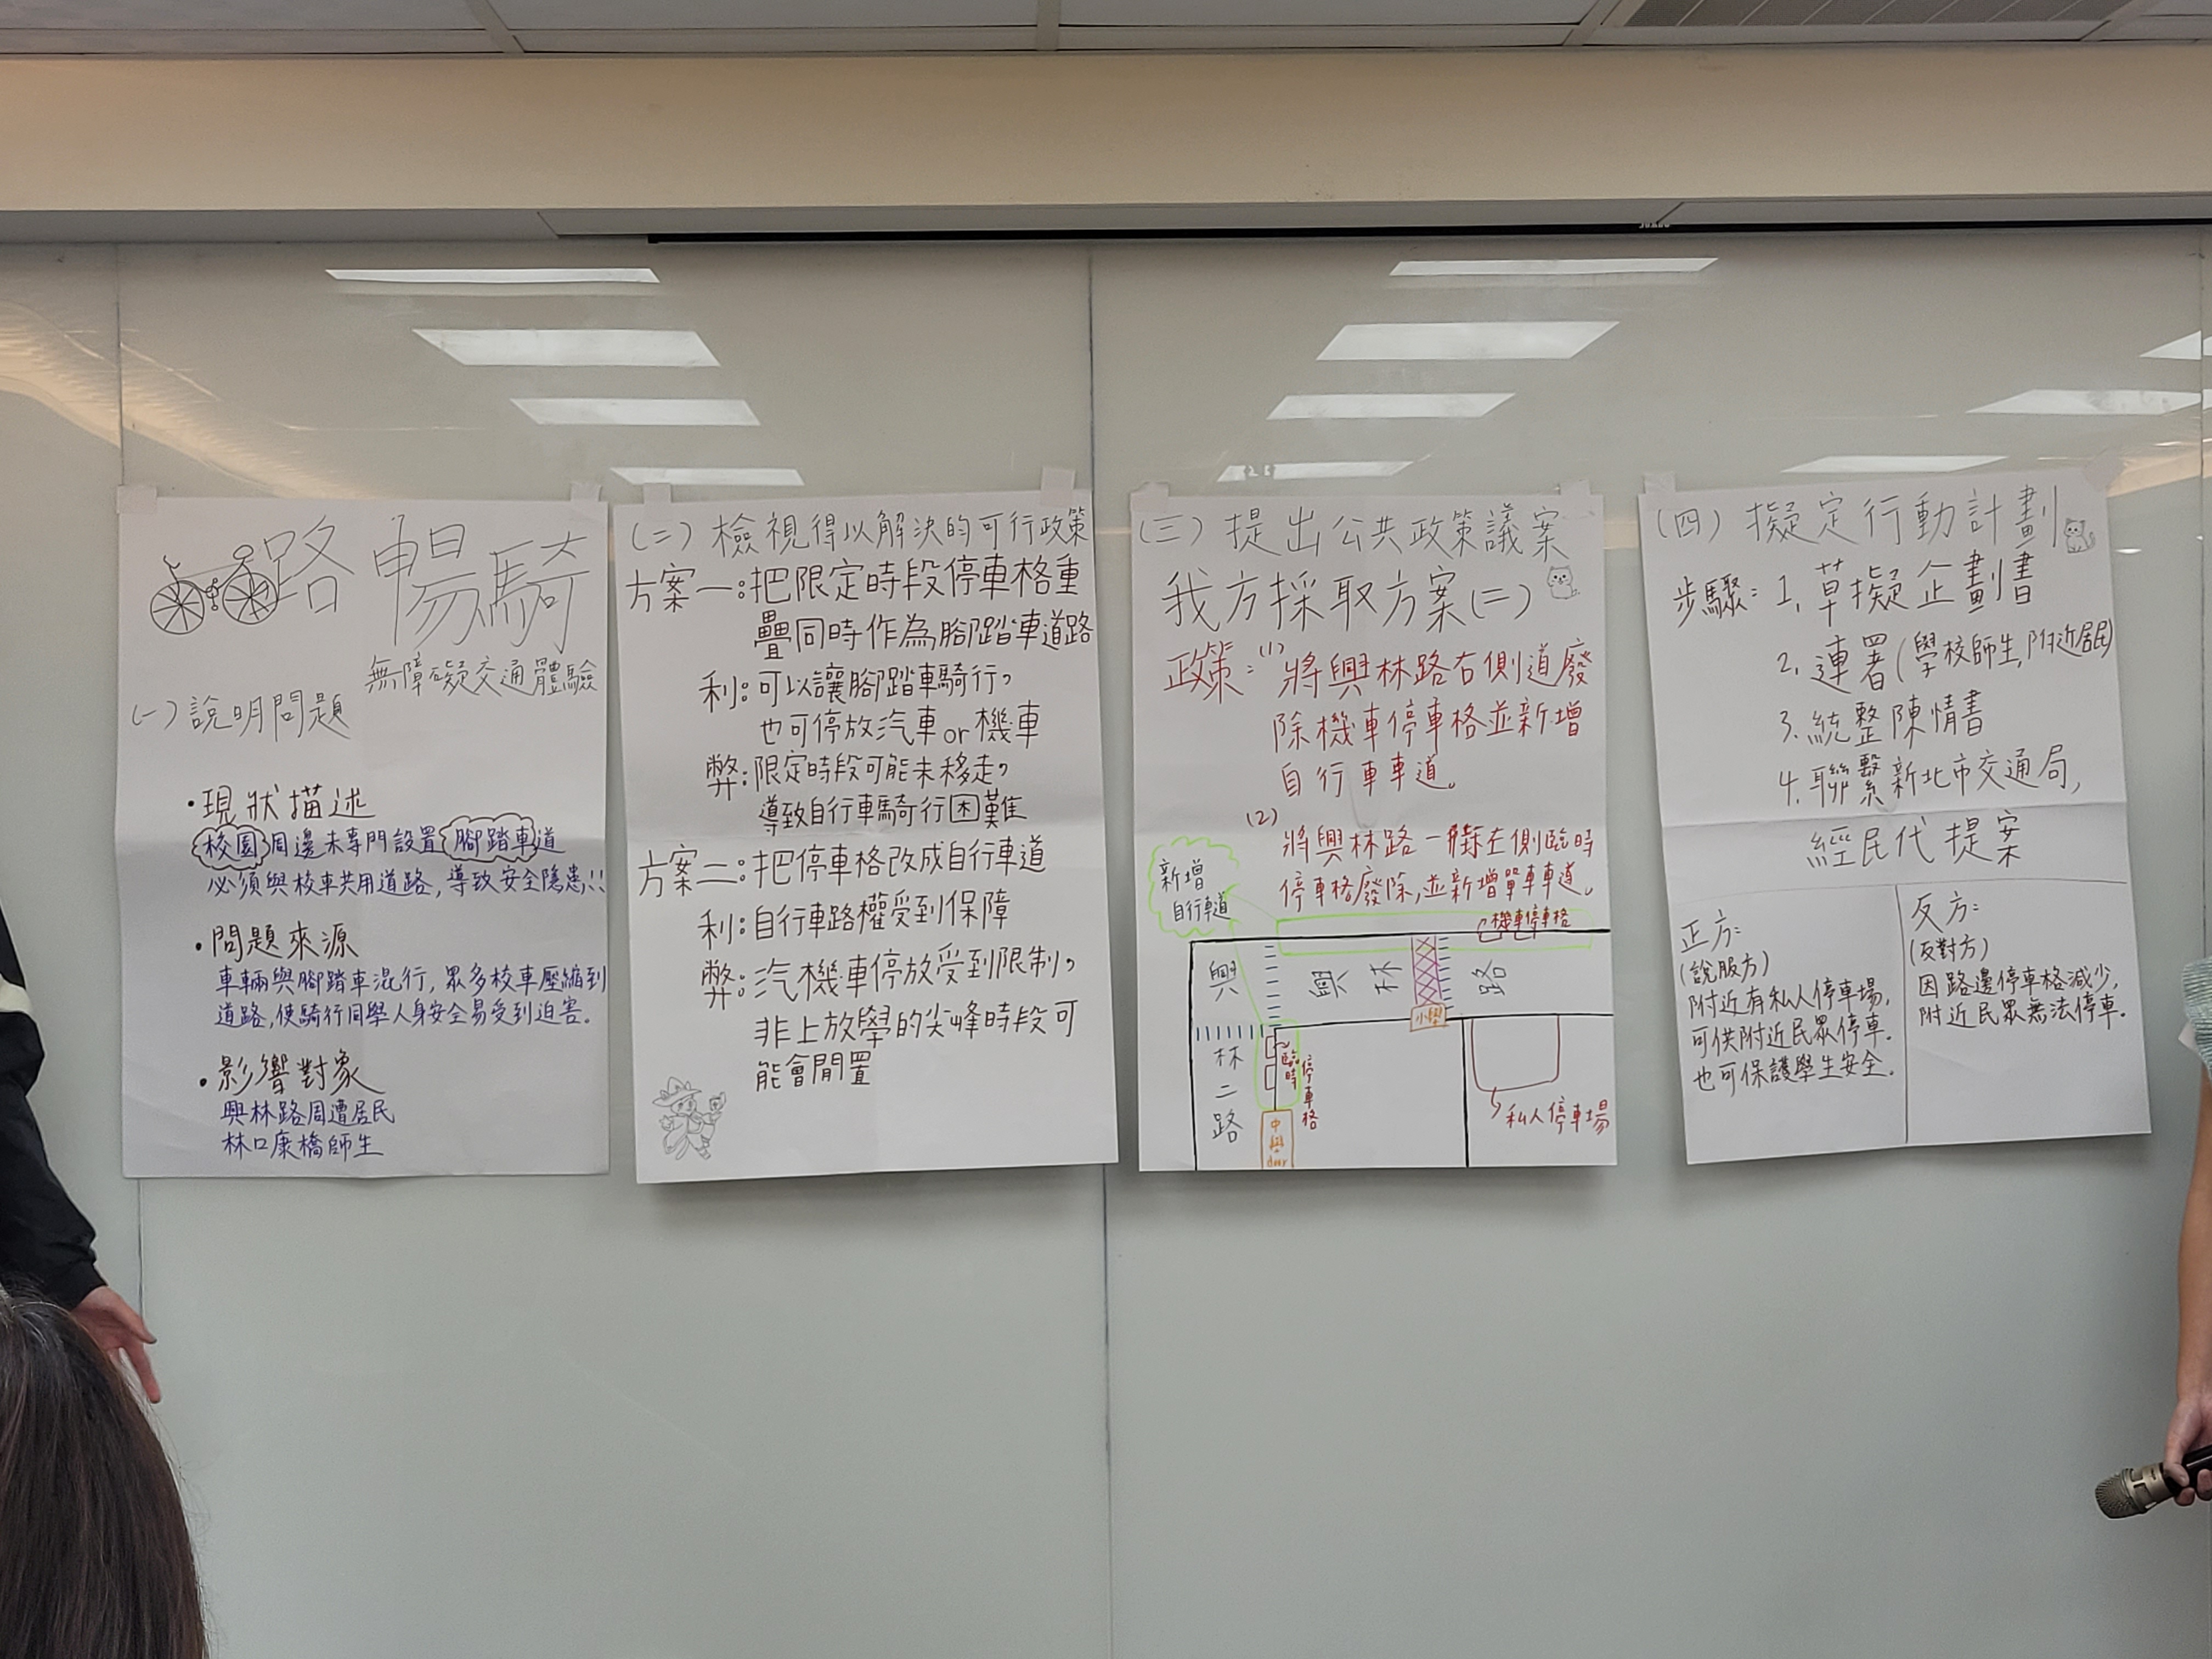 路 暢騎
無障礙交通體驗
(一)說明問題
•現狀描述
校園周邊未專門設置腳踏車道
必須與校車共用道路,導致安全隱患!!
•問題來源
車輛與腳踏車混行,眾多校車壓縮到
道路,使騎行同學人身安全易受到迫害。
•影響對象
興林路周遭居民
林口康橋師生
(二)檢視得以解決的可行政策
方案一:把限定時段停車格重
疊同時作為腳踏車道路
利:可以讓腳踏車騎行,
也可停放汽車or機車
弊:限定時段可能未移走,
導致自行車騎行困難
方案二:把停車格改成自行車道
利:自行車路權受到保障
弊:汽機車停放受到限制,
非上放學的尖峰時段可
能會閒置
(三)提出公共政策議案
我方採取方案(二)
政策:(1)將興林路右側道廢
除機車停車格並新增
自行車車道。
(2)
將興林路一 左側臨時
停車格廢除,並新增單車車道。
新增
自行車道
機車停車格
興 林 路
小學
林二路
臨時
停車格
中學
door
私人停車場
(四)擬定行動計劃
步驟:1.草擬企劃書
2.連署(學校師生,附近居民)
3.統整陳情書
4.聯繫新北市交通局,
經民代提案
正方:
(說服方)
附近有私人停車場,
可供附近民眾停車.
也可保護學生安全.
反方:
(反對方)
因路邊停車格減少,
附近民眾無法停車.